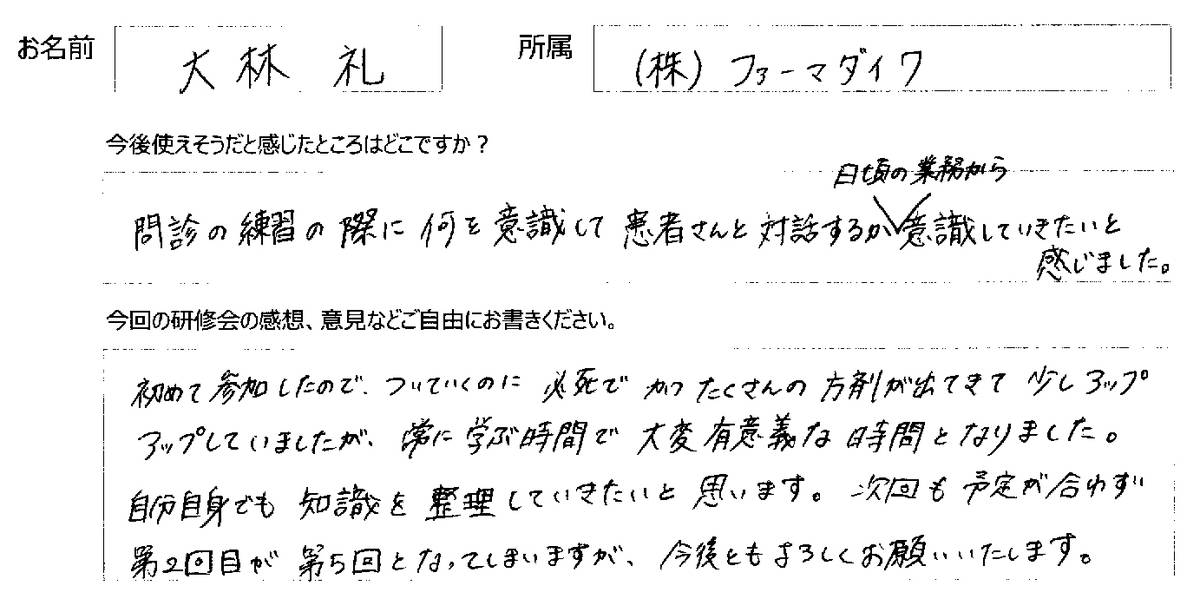 お名前 大林 礼 所属 (株)ファーマダイワ
今後使えそうだと感じたところはどこですか？
日頃の業務から
問診の練習の際に何を意識して患者さんと対話するか意識していきたいと
感じました。
今回の研修会の感想、意見などご自由にお書きください。
初めて参加したので、ついていくのに必死でかつたくさんの方剤が出てきて少しアップ
アップしていましたが、常に学ぶ時間で大変有意義な時間となりました。
自分自身でも知識を整理していきたいと思います。次回も予定が合わず
第2回目が第5回となってしまいますが、今後ともよろしくお願いいたします。